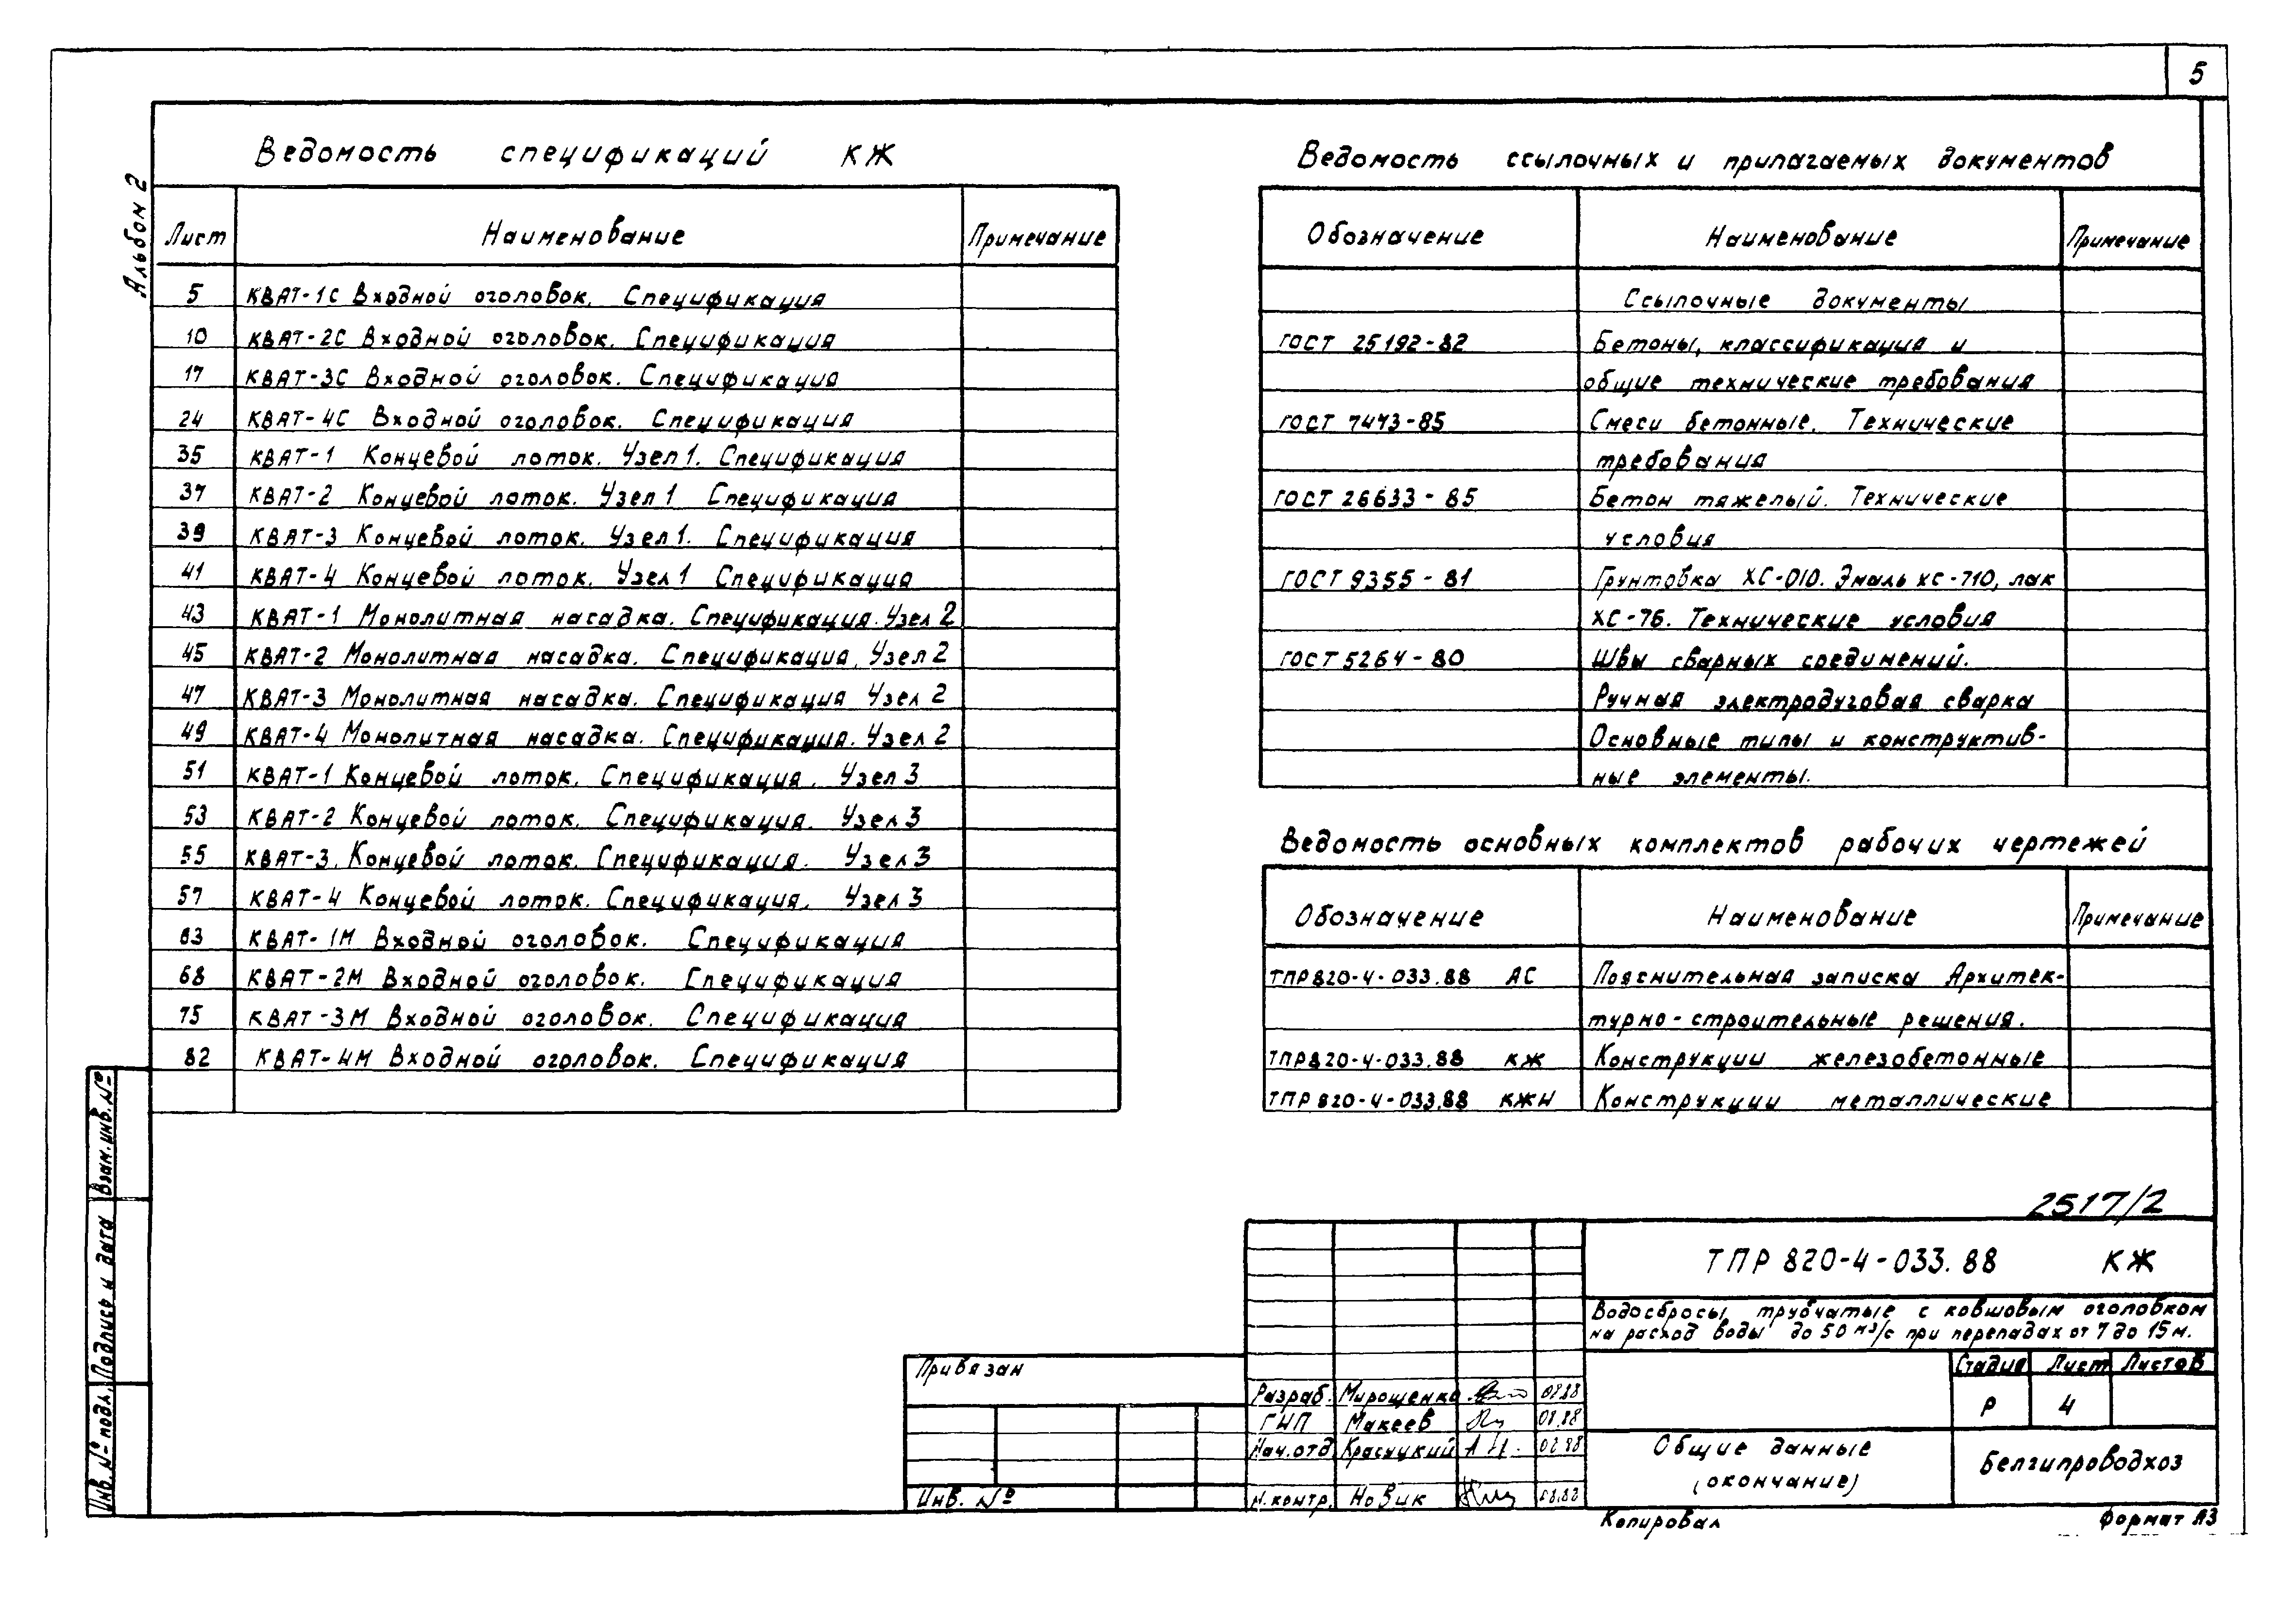 5
Альбом 2
Ведомость спецификаций КЖ
Лист Наименование Примечание
5 КВАТ-1С Входной оголовок. Спецификация
10 КВАТ-2С Входной оголовок. Спецификация
17 КВАТ-3С Входной оголовок. Спецификация
24 КВАТ-4С Входной оголовок. Спецификация
35 КВАТ-1 Концевой лоток. Узел 1. Спецификация
37 КВАТ-2 Концевой лоток. Узел 1 Спецификация
39 КВАТ-3 Концевой лоток. Узел 1. Спецификация
41 КВАТ-4 Концевой лоток. Узел 1 Спецификация
43 КВАТ-1 Монолитная насадка. Спецификация. Узел 2
45 КВАТ-2 Монолитная насадка. Спецификация. Узел 2
47 КВАТ-3 Монолитная насадка. Спецификация Узел 2
49 КВАТ-4 Монолитная насадка. Спецификация. Узел 2
51 КВАТ-1 Концевой лоток. Спецификация. Узел 3
53 КВАТ-2 Концевой лоток. Спецификация. Узел 3
55 КВАТ-3. Концевой лоток. Спецификация. Узел 3
57 КВАТ-4 Концевой лоток. Спецификация. Узел 3
63 КВАТ-1М Входной оголовок. Спецификация
68 КВАТ-2М Входной оголовок. Спецификация
75 КВАТ-3М Входной оголовок. Спецификация
82 КВАТ-4М Входной оголовок. Спецификация
Ведомость ссылочных и прилагаемых документов
Обозначение Наименование Примечание
Ссылочные документы
ГОСТ 25192-82 Бетоны, классификация и
общие технические требования
ГОСТ 7473-85 Смеси бетонные. Технические
требования
ГОСТ 26633-85 Бетон тяжелый. Технические
условия
ГОСТ 9355-81 Грунтовка ХС-010. Эмаль ХС-710, лак
ХС-76. Технические условия
ГОСТ 5264-80 Швы сварных соединений.
Ручная электродуговая сварка
Основные типы и конструктив-
ные элементы.
Ведомость основных комплектов рабочих чертежей
Обозначение Наименование Примечание
ТПР 820-4-033.88 АС Пояснительная записка Архитек-
турно-строительные решения.
ТПР 820-4-033.88 КЖ Конструкции железобетонные
ТПР 820-4-033.88 КЖИ Конструкции металлические
2517/2
ТПР 820-4-033.88 КЖ
Водосбросы трубчатые с ковшовым оголовком
на расход воды до 50 м³/с при перепадах от 7 до 15 м.
Стадия Лист Листов
Р 4
Общие данные
(окончание)
Белгипроводхоз
Разраб. Мирощенко 08.88
ГИП Макеев 08.88
Нач. отд Красуцкий 08.88
Н. контр. Новик 08.88
Привязан
Инв. №
Взам. инв. №
Подпись и дата
Инв. № подл.
Копировал
Формат А3